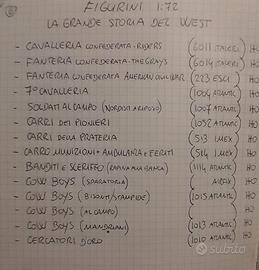 FIGURINI 1:72
LA GRANDE STORIA DEL WEST
- CAVALLERIA CONFEDERATA - RIDERS (6011 ITALERI) HO
- FANTERIA CONFEDERATA - THE GRAYS (6014 ITALERI) HO
- FANTERIA CONFEDERATA AMERICAN CIVIL WAR (223 ESCI) HO
- 7° CAVALLERIA (1004 ATLANTIC) HO
- SOLDATI AL CAMPO (NORDISTI A RIPOSO) (1007 ATLANTIC) HO
- CARRI DEI PIONIERI (1052 ATLANTIC) HO
- CARRI DELLA PRATERIA (513 IMEX) HO
- CARRO MUNIZIONI + AMBULANZA E FERITI (514 IMEX) HO
- BANDITI E SCERIFFO (RAPINA ALLA BANCA) (1114 ATLANTIC) HO
- COW BOYS (SPARATORIA) ( AIRFIX) HO
- COW BOYS (BISONTI/STAMPIDE) (1015 ATLANTIC) HO
- COW BOYS (AL CAMPO) ( ) HO
- COW BOYS (MANDRIANI) (1013 ATLANTIC) HO
- CERCATORI D'ORO (1010 ATLANTIC) HO
subito